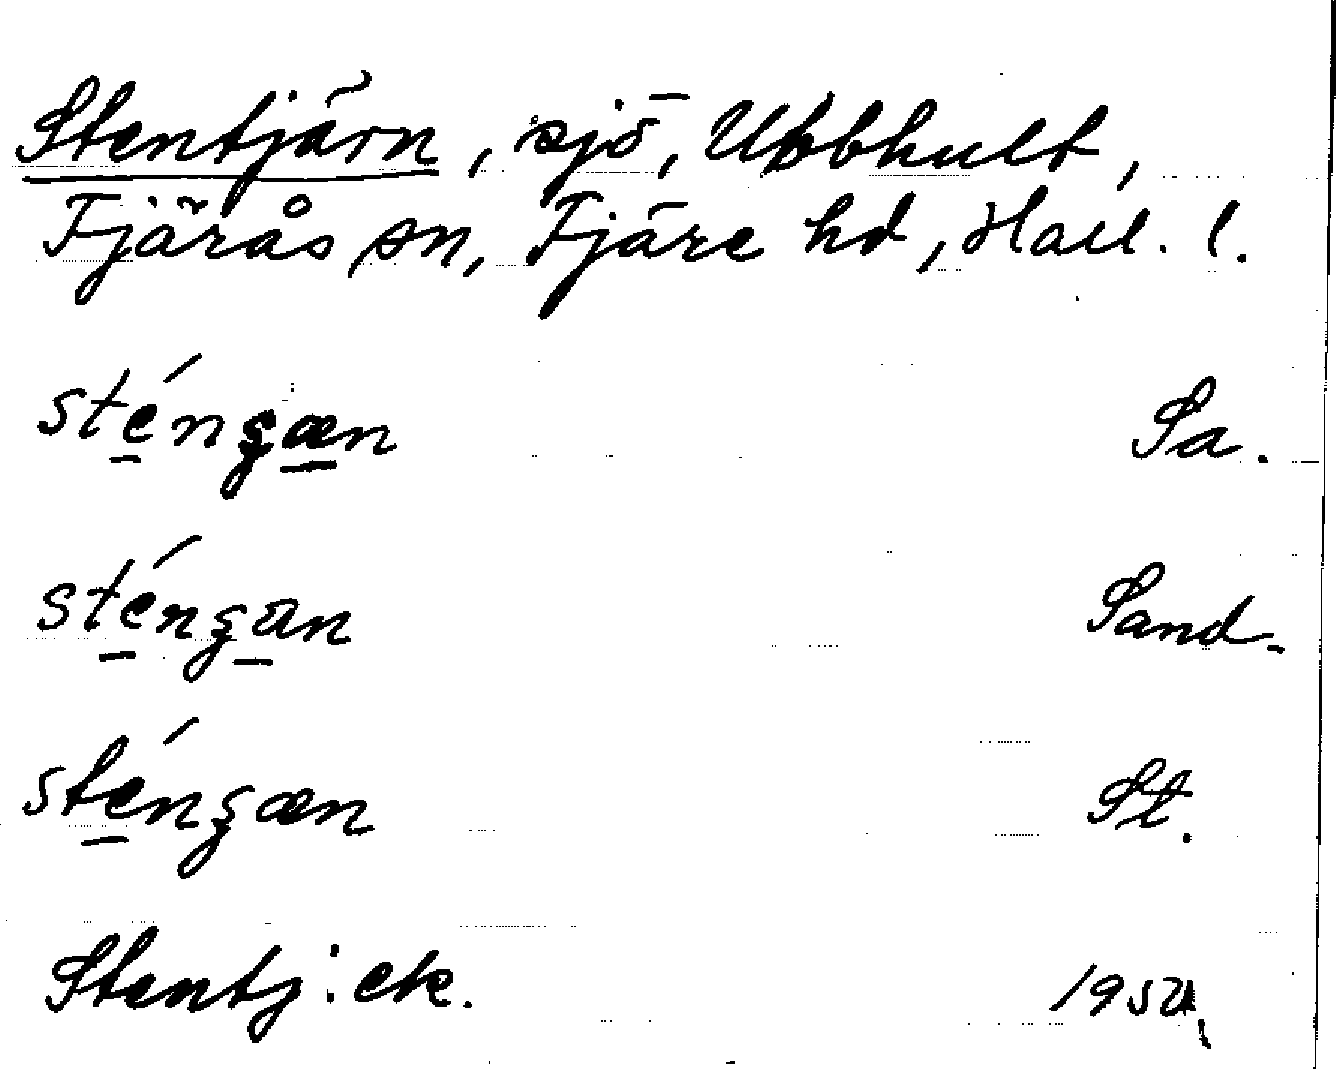 Stentjärn, sjö, Ubbhult,
Fjärås sn, Fjäre hd, Hall. l.
sténgæn Sa.
sténgän Sand.
sténgæn St.
Stentj: ek.